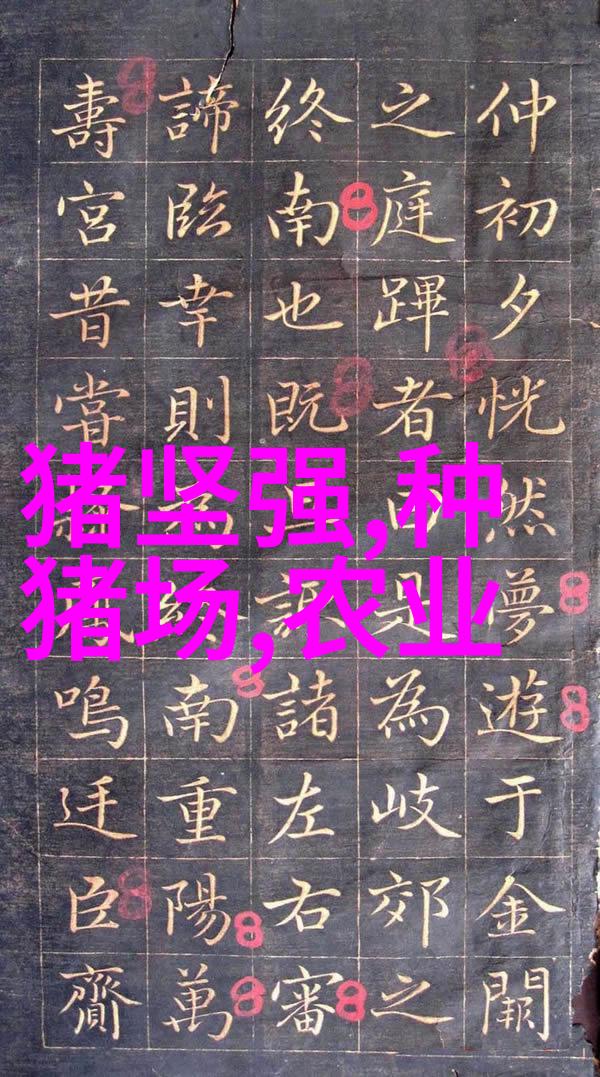 仲初夕恍然夢遊于金闕
之庭蹕者曰是為岐郊之
終南也既諸左右審
諦臨幸則為終南重陽萬
壽宮昔嘗鳴廷臣齎
猪坚强,种
猪场,农业